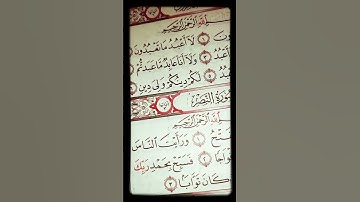 بِسْمِ ٱللَّهِ ٱلرَّحْمَٰنِ ٱلرَّحِيمِ
لَآ أَعْبُدُ مَا تَعْبُدُونَ
وَلَآ أَنَا۠ عَابِدٌ مَّا عَبَدتُّمْ
لَكُمْ دِينُكُمْ وَلِىَ دِينِ ٦
سُورَةُ النَّصْرِ
بِسْمِ ٱللَّهِ ٱلرَّحْمَٰنِ ٱلرَّحِيمِ
١ وَرَأَيْتَ ٱلنَّاسَ
٢ فَسَبِّحْ بِحَمْدِ رَبِّكَ
كَانَ تَوَّابًۢا ٣